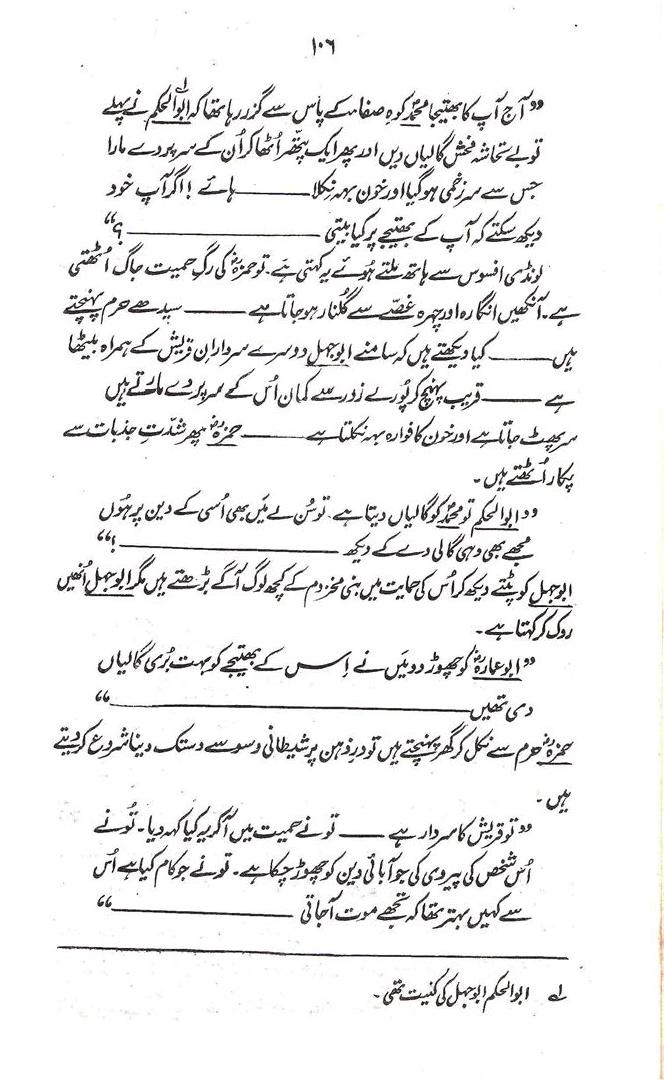 ۱۰۶
”آج آپ کا بھتیجا محمدؐ کوہِ صفا کے پاس سے گزر رہا تھا کہ ابوالحکم۱ نے پہلے
تو بے تحاشہ فحش گالیاں دیں اور پھر ایک پتھر اُٹھا کر اُن کے سر پر دے مارا
جس سے سر زخمی ہو گیا اور خون بہہ نکلا ——— ہائے! اگر آپ خود
دیکھ سکتے کہ آپ کے بھتیجے پر کیا بیتی ——————؟“
لونڈی افسوس سے ہاتھ ملتے ہُوئے یہ کہتی ہے۔ تو حمزہؓ کی رگِ حمیت جاگ اُٹھتی
ہے۔ آنکھیں انگارہ اور چہرہ غصّے سے گُلنار ہو جاتا ہے ——— سیدھے حرم پہنچتے
ہیں ——— کیا دیکھتے ہیں کہ سامنے ابوجہل دوسرے سردارانِ قریش کے ہمراہ بیٹھا
ہے ——— قریب پہنچ کر پُورے زور سے کمان اُس کے سر پر دے مارتے ہیں
سر پھٹ جاتا ہے اور خون کا فوارہ بہہ نکلتا ہے ——— حمزہؓ پھر شدّتِ جذبات سے
پکار اُٹھتے ہیں۔
”ابوالحکم تو محمدؐ کو گالیاں دیتا ہے۔ تو سُن لے میں بھی اُسی کے دین پر ہُوں
مجھے بھی وہی گالی دے کے دیکھ ——————!“
ابوجہل کو پٹتے دیکھ کر اُس کی حمایت میں بنی مخزوم کے کچھ لوگ آگے بڑھتے ہیں مگر ابوجہل اُنھیں
روک کر کہتا ہے۔
”ابوعمارہؓ کو چھوڑ دو میَں نے اِس کے بھتیجے کو بہت بُری گالیاں
دی تھیں ——————“
حمزہؓ حرم سے نکل کر گھر پہنچتے ہیں تو درِ ذہن پر شیطانی وسوسے دستک دینا شروع کر دیتے
ہیں۔
”تو قریش کا سردار ہے ——— تو نے حمیت میں آ کر یہ کیا کہہ دیا۔ تُو نے
اُس شخص کی پیروی کی جو آبائی دین کو چھوڑ چکا ہے۔ تو نے جو کام کیا ہے اُس
سے کہیں بہتر تھا کہ تجھے موت آ جاتی ——————“
۱ ابوالحکم ابوجہل کی کنیت تھی۔